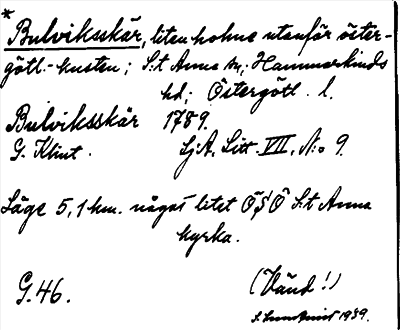 *
Bulviksskär, liten holme utanför öster-
götl.-kusten; S:t Anna sn; Hammarkinds
hd; Östergötl. l.
Bulviksskär 1789.
G. Klint. SjA, Litt. VII, No 9.
Läge 5,1 km. något litet ÖSÖ S:t Anna
kyrka.
G.46.
(Vänd!)
1939.